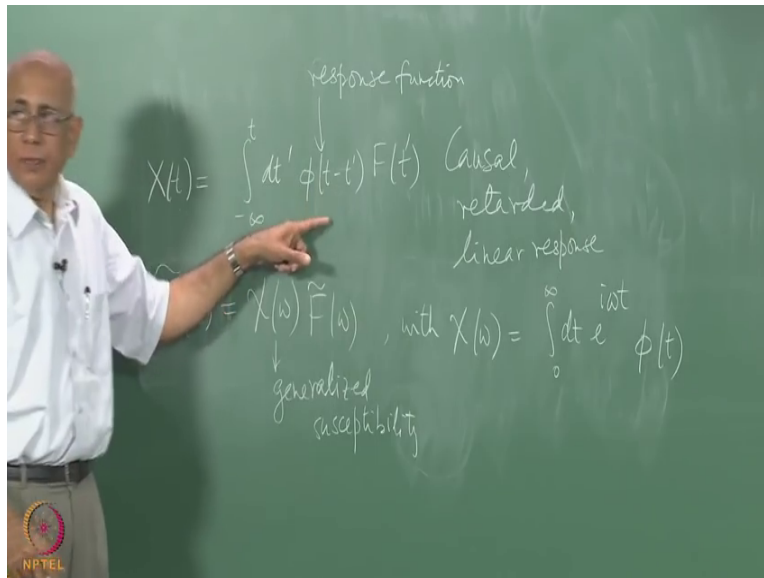 response function
↓
X(t) = ∫_{-∞}^{t} dt' ϕ(t-t') F(t') Causal,
retarded,
linear response
= χ(ω) F̃(ω) , with χ(ω) = ∫_{0}^{∞} dt e^{iωt} ϕ(t)
↓
generalized
susceptibility
NPTEL